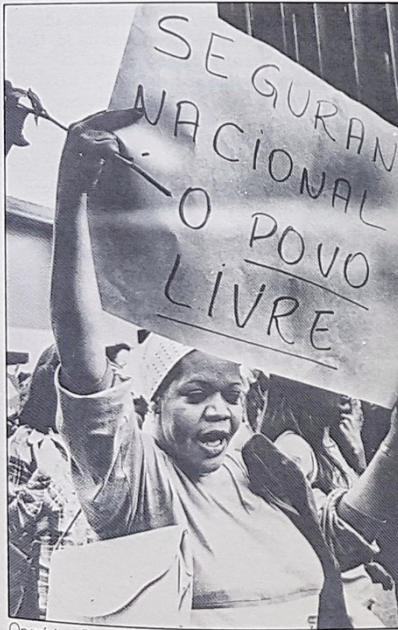 SEGURAN
NACIONAL
O POVO
LIVRE